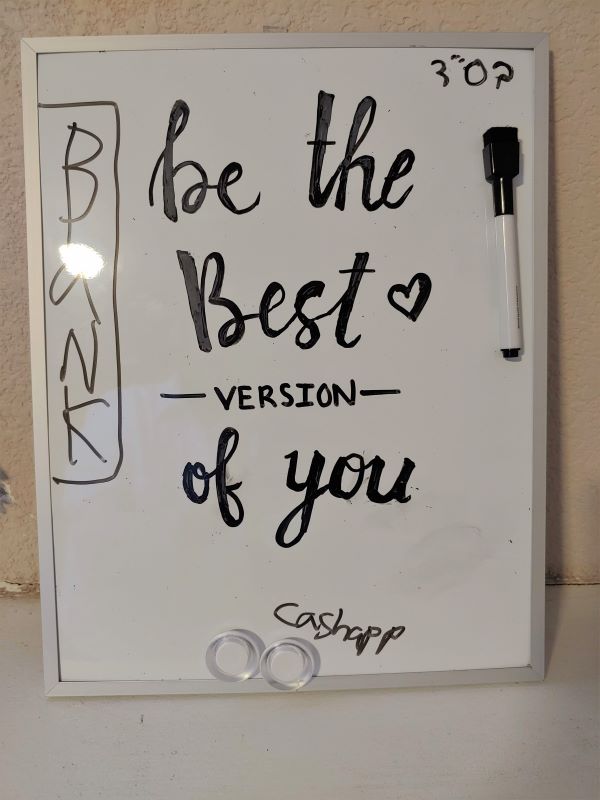 בס"ד
BaNK
be the
Best ♡
— VERSION —
of you
Cashapp